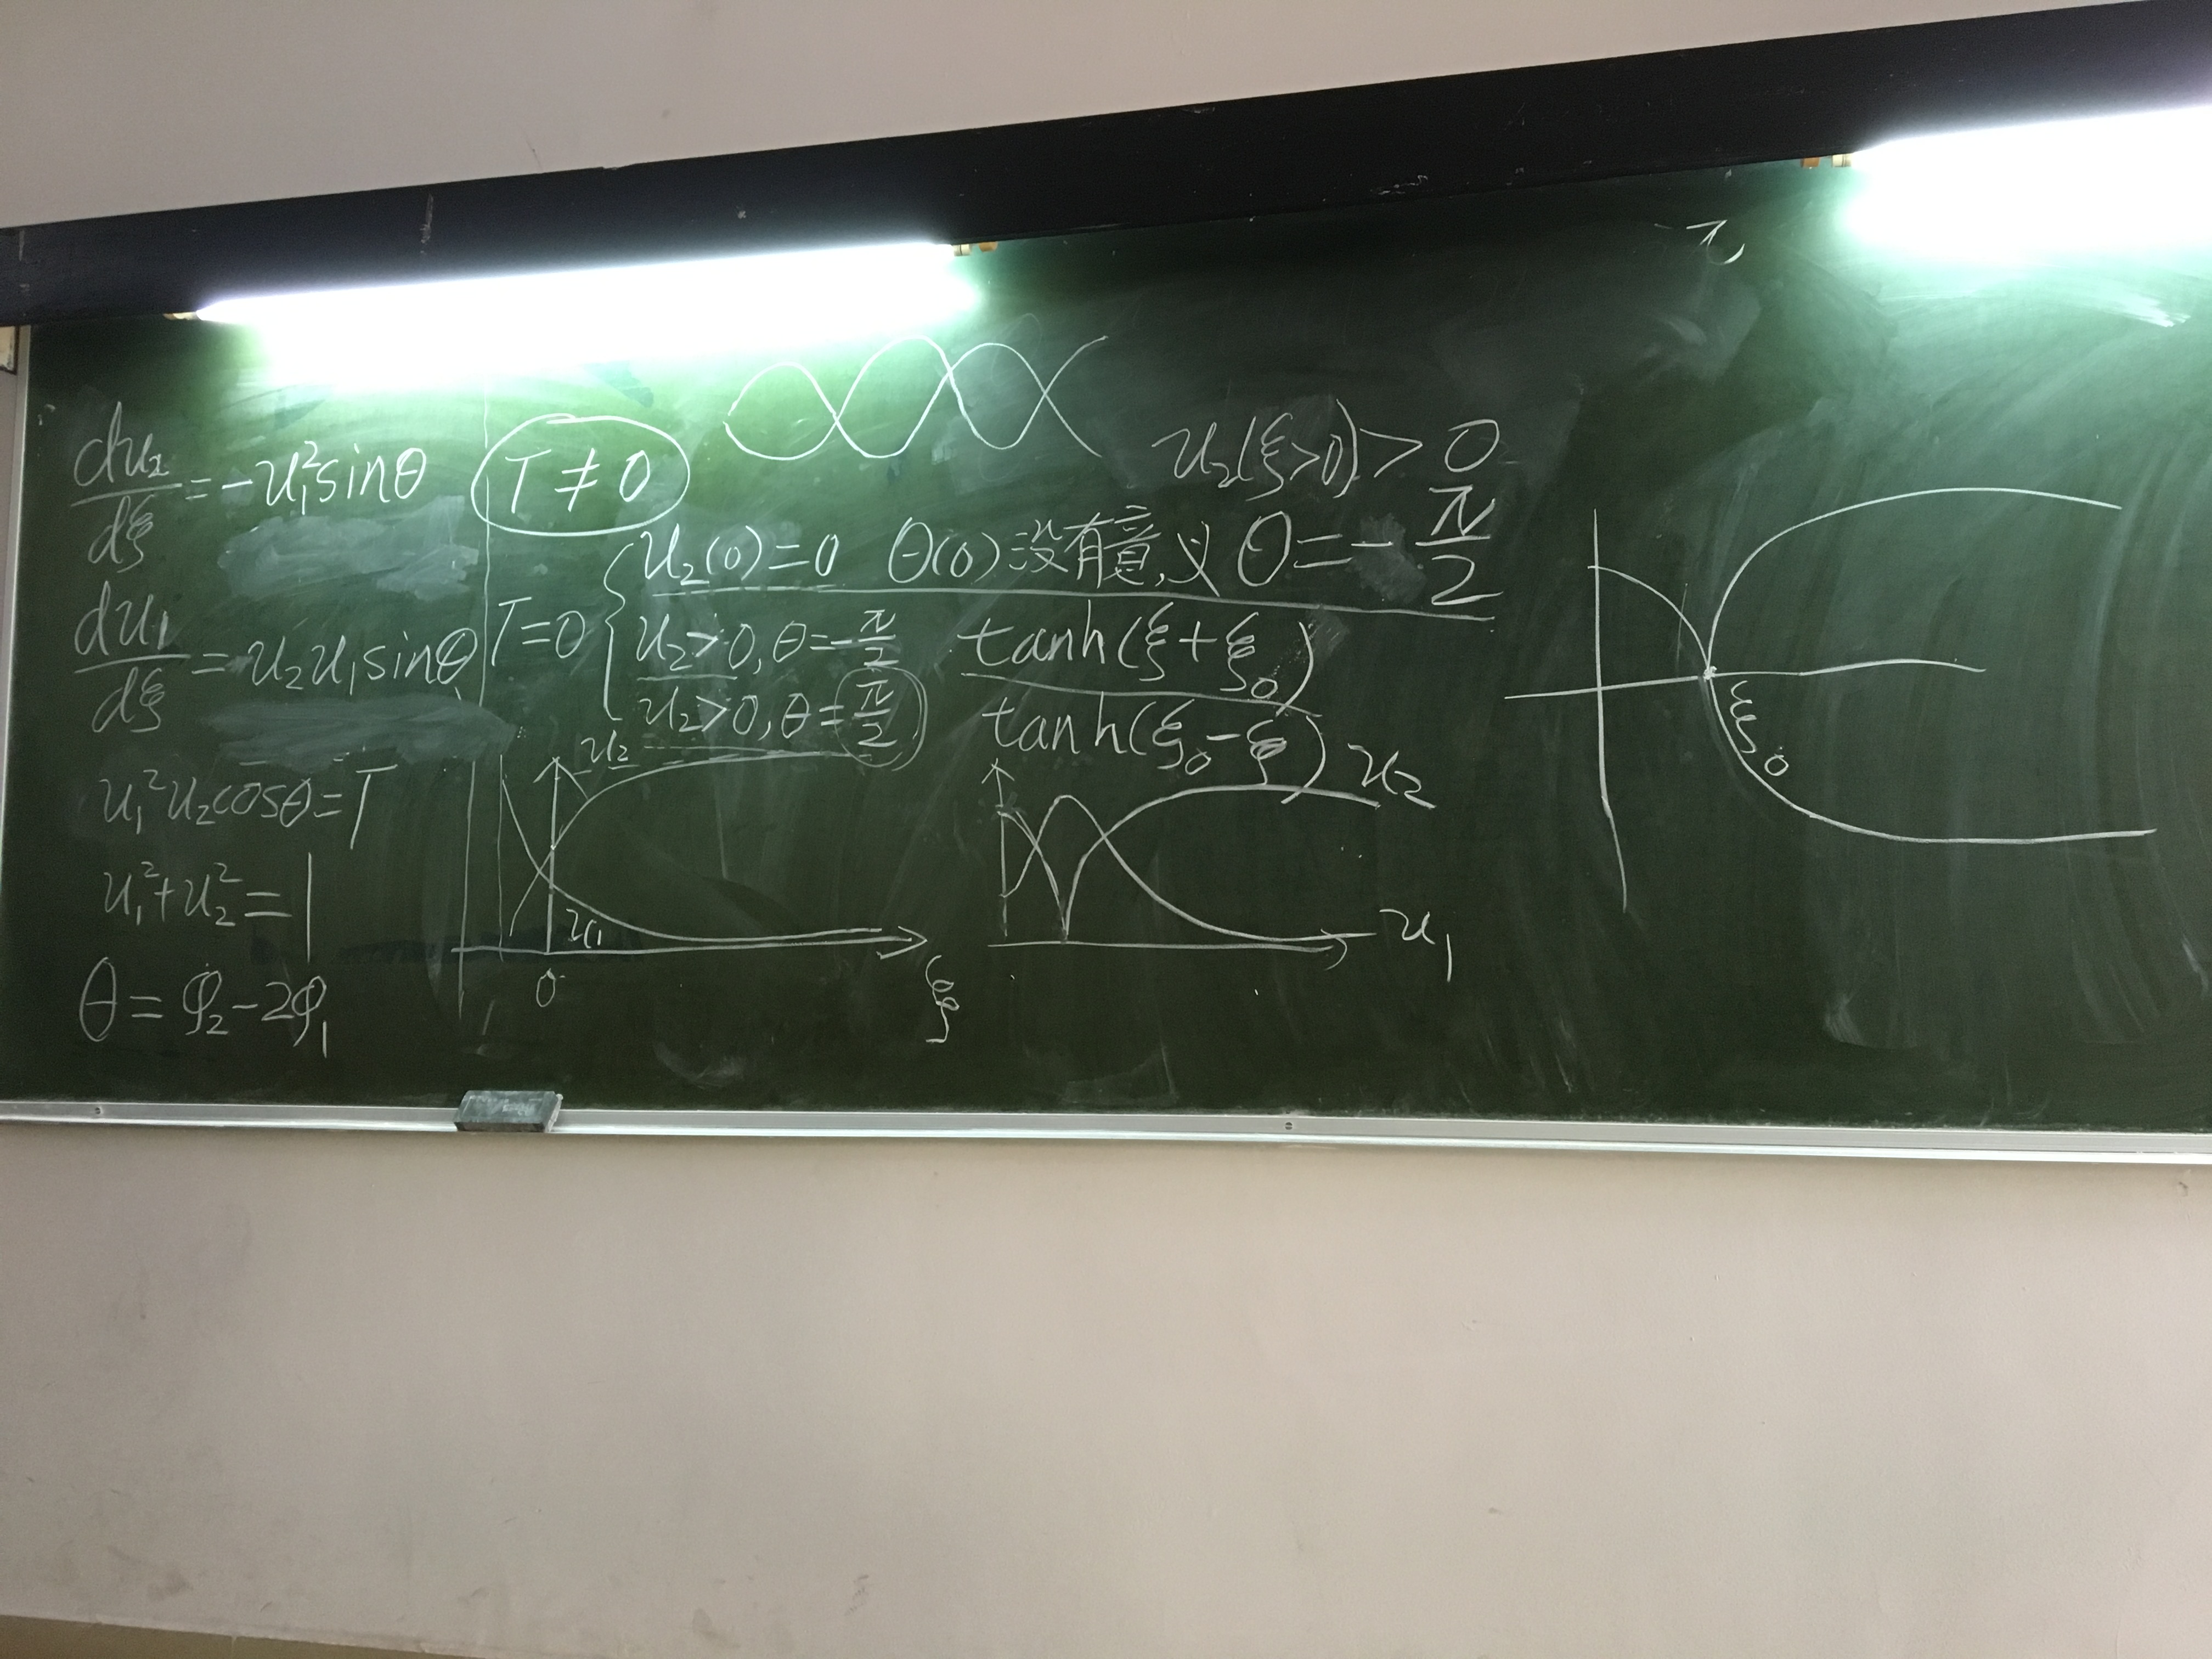 du₂/dξ = -u₁²sinθ
du₁/dξ = u₂u₁sinθ
u₁²u₂cosθ=T
u₁²+u₂²=1
θ=φ₂-2φ₁
T≠0
u₂(ξ>0)>0
T=0
u₂(0)=0 θ(0)没有意义 θ=-π/2
u₂>0,θ=-π/2 tanh(ξ+ξ₀)
u₂>0,θ=π/2 tanh(ξ₀-ξ)
u₂
u₁
0
ξ
u₂
u₁
ξ₀